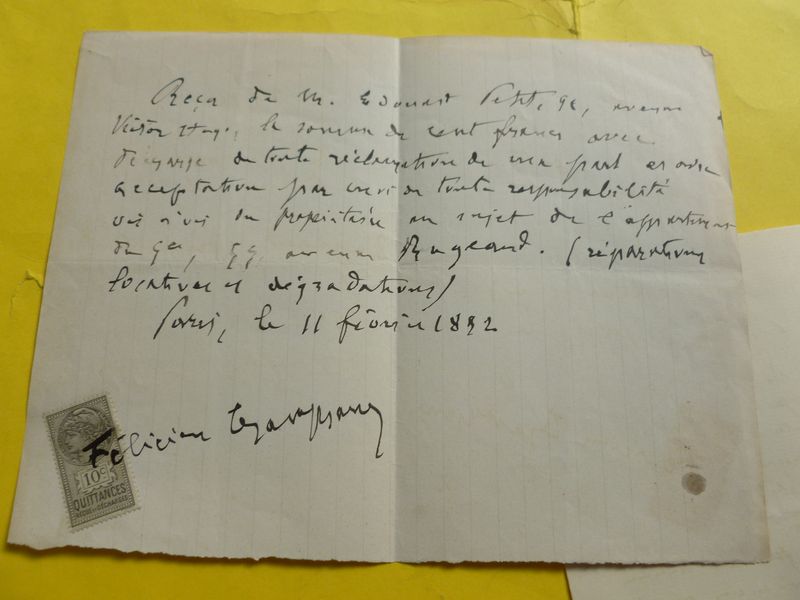 Reçu de M. Edouard Petit, 92, avenue
Victor Hugo, la somme de cent francs avec
décharge de toute réclamation de ma part et avec
acceptation par moi de toute responsabilité
vis à vis du propriétaire au sujet de l'appartement
du avenue Bugeaud. (réparations
locatives et dégradations)
Paris, le 11 février 1892
Félicien Champsaur
10c
QUITTANCES
REÇUS ET DÉCHARGES